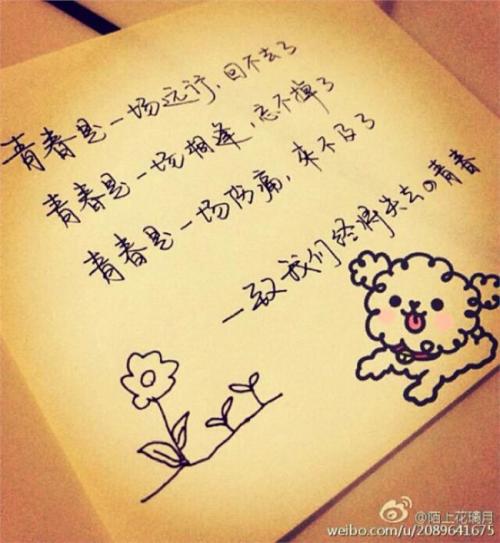 青春是一场远行，回不去了
青春是一场相逢，忘不掉了
青春是一场伤痛，来不及了
—致我们终将失去の青春
@陌上花瑀月
weibo.com/u/2089641675